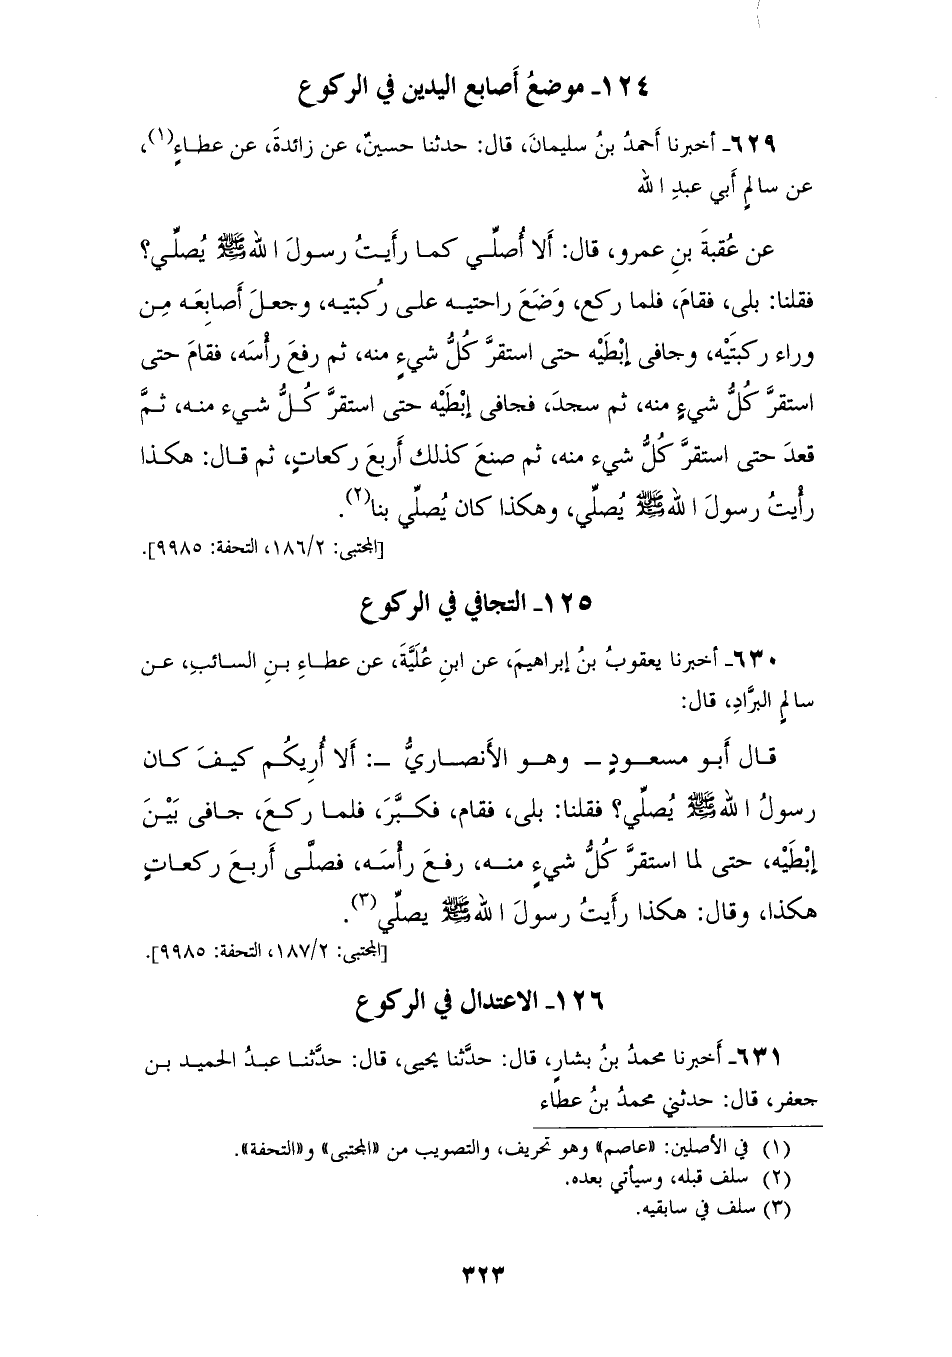 ١٢٤ـ موضعُ أَصابع اليدين في الركوع
٦٢٩ـ أخبرنا أَحمدُ بنُ سليمانَ، قال: حدثنا حسينٌ، عن زائدةَ، عن عطاءٍ(١)،
عن سالمٍ أَبي عبدِ الله
عن عُقبةَ بنِ عمرو، قال: أَلا أُصلِّي كما رأَيتُ رسولَ اللهﷺ يُصلِّي؟
فقلنا: بلى، فقامَ، فلما ركع، وَضَعَ راحتيه على رُكبتيه، وجعلَ أَصابعَه مِن
وراء ركبَتَيْه، وجافى إبْطَيْه حتى استقرَّ كُلُّ شيءٍ منه، ثم رفعَ رأْسَه، فقامَ حتى
استقرَّ كُلُّ شيءٍ منه، ثم سجدَ، فجافى إبْطَيْه حتى استقرَّ كُلُّ شيء منه، ثمَّ
قعدَ حتى استقرَّ كُلُّ شيء منه، ثم صنعَ كذلك أَربعَ ركعاتٍ، ثم قال: هكذا
رأَيتُ رسولَ اللهﷺ يُصلِّي، وهكذا كان يُصلِّي بنا(٢).
[المجتبى: ١٨٦/٢، التحفة: ٩٩٨٥].
١٢٥ـ التجافي في الركوع
٦٣٠ـ أخبرنا يعقوبُ بنُ إبراهيمَ، عن ابنِ عُلَيَّةَ، عن عطاءِ بنِ السائبِ، عن
سالمٍ البرَّادِ، قال:
قال أَبو مسعودٍ ـ وهو الأَنصاريُّ ـ: أَلا أُرِيكُم كيفَ كان
رسولُ اللهﷺ يُصلِّي؟ فقلنا: بلى، فقام، فكبَّرَ، فلما ركعَ، جافى بَيْنَ
إبْطَيْه، حتى لما استقرَّ كُلُّ شيءٍ منه، رفعَ رأْسَه، فصلَّى أَربعَ ركعاتٍ
هكذا، وقال: هكذا رأَيتُ رسولَ اللهﷺ يصلِّي(٣).
[المجتبى: ١٨٧/٢، التحفة: ٩٩٨٥].
١٢٦ـ الاعتدال في الركوع
٦٣١ـ أَخبرنا محمدُ بنُ بشارٍ، قال: حدَّثنا يحيى، قال: حدَّثنا عبدُ الحميد بن
جعفر، قال: حدثني محمدُ بنُ عطاء
(١) في الأصلين: «عاصم» وهو تحريف، والتصويب من «المجتبى» و«التحفة».
(٢) سلف قبله، وسيأتي بعده.
(٣) سلف في سابقيه.
٣٢٣